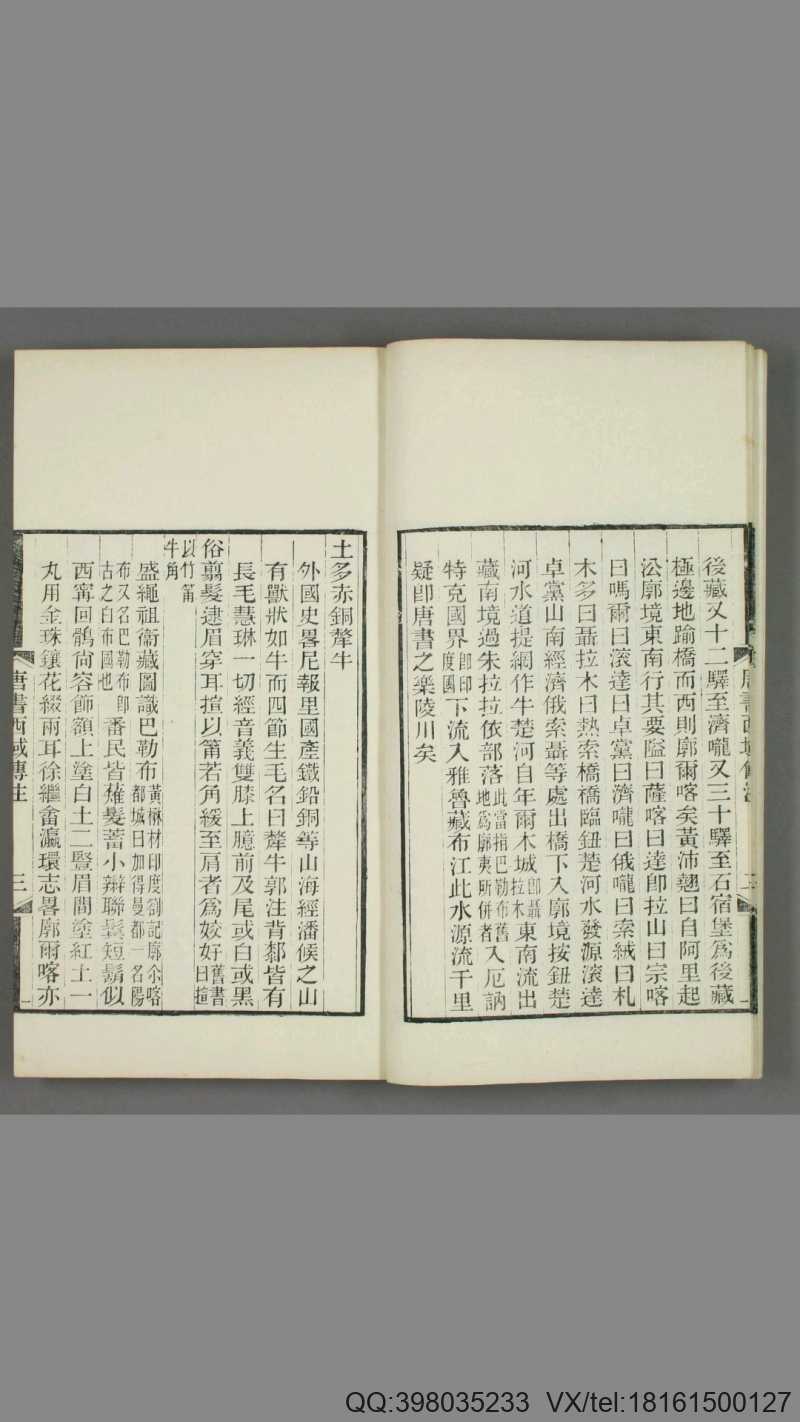 後藏又十二驛至濟嚨又三十驛至石宿堡爲後藏
極邊地踰橋而西則廓爾喀矣黃沛翹曰自阿里起
訟廓境東南行其要隘曰薩喀曰達卽拉山曰宗喀
曰嗎爾曰滚達曰卓黨曰濟嚨曰俄嚨曰索絨曰札
木多曰聶拉木曰熱索橋橋臨鈕楚河水發源滚達
卓黨山南經濟俄索聶等處出橋下入廓境按鈕楚
河水道提綱作牛楚河自年爾木城卽聶拉木東南流出
藏南境過朱拉拉依部落此當指巴勒布舊地爲廓夷所併者入厄訥
特克國界卽印度國下流入雅魯藏布江此水源流千里
疑卽唐書之樂陵川矣
唐書西域傳注
二
土多赤銅犛牛
外國史畧尼報里國產鐵鉛銅等山海經潘候之山
有獸狀如牛而四節生毛名曰犛牛郭注背郄皆有
長毛慧琳一切經音義雙膝上臆前及尾或白或黑
俗翦髮逮眉穿耳揎以筩若角緩至肩者爲姣好舊書曰揎
以竹筩牛角
盛繩祖衞藏圖識巴勒布黃楙材印度劄記廓尒喀都城曰加得曼都一名陽
布又名巴勒布卽古之白布國也番民皆薙髮蓄小辮聯鬓短鬍似
西寗回鶻尙容飾額上塗白土二豎眉間塗紅土一
丸用金珠鑲花綴兩耳徐繼畬瀛環志畧廓爾喀亦
唐書西域傳注
三
QQ:398035233 VX/tel:18161500127